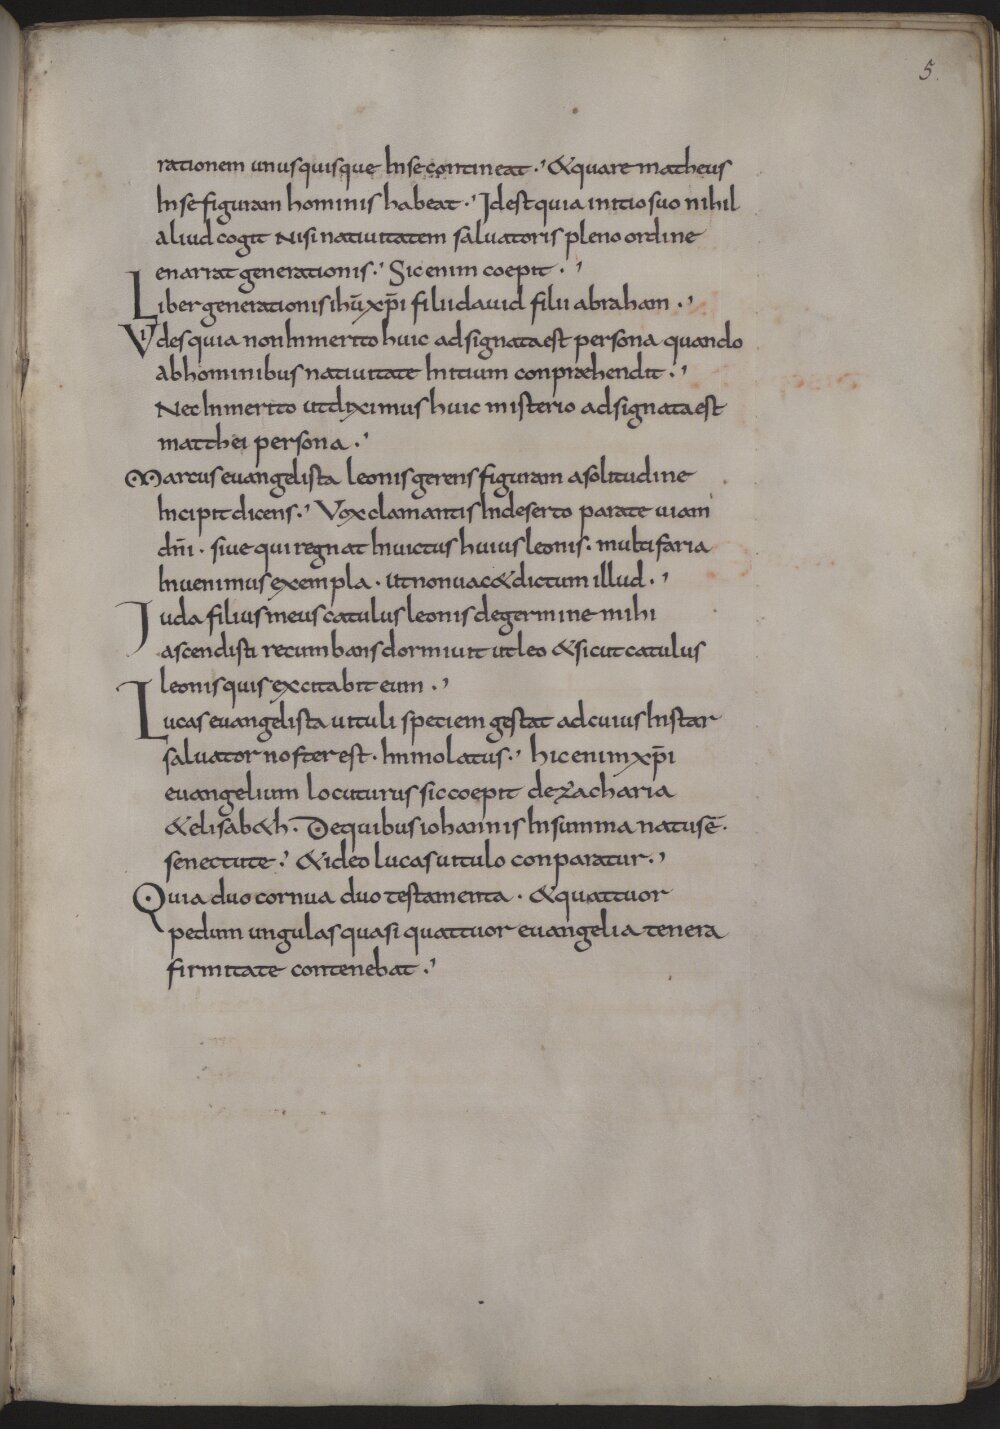 5.
rationem unusquisque In se contineat .' & quare matheus
In se figuram hominis habeat .' Id est quia initio suo nihil
aliud cogit nisi natiuitatem saluatoris pleno ordine
enarrat generationis .' Sic enim coepit . '
Liber generationis ihū xp̄i filii dauid filii abraham . '
Vides quia non Inmerito huic adsignata est persona quando
ab hominibus natiuitate Initium conpræhendit . '
Nec Inmerito ut diximus huic misterio adsignata est
matthei persona . '
Marcus euangelista leonis gerens figuram a solitudine
Incipit dicens .' Vox clamantis In deserto parate uiam
dn̄i . siue qui regnat Inuictus huius leonis . multifaria
Inuenimus exempla . ut non uac& dictum illud . '
Iuda filius meus catulus leonis de germine mihi
ascendisti recumbans dormiuit ut leo & sicut catulus
leonis quis excitabit eum . '
Lucas euangelista uituli speciem gestat ad cuius Instar
saluator noster est . Inmolatus .' hic enim xp̄i
euangelium locuturus sic coepit de zacharia
& elisab&h . De quibus iohannis In summa natus ē .
senectute .' & ideo lucas uitulo conparatur . '
Quia duo cornua duo testamenta . & quattuor
pedum ungulas quasi quattuor euangelia tenera
firmitate contenebat . '